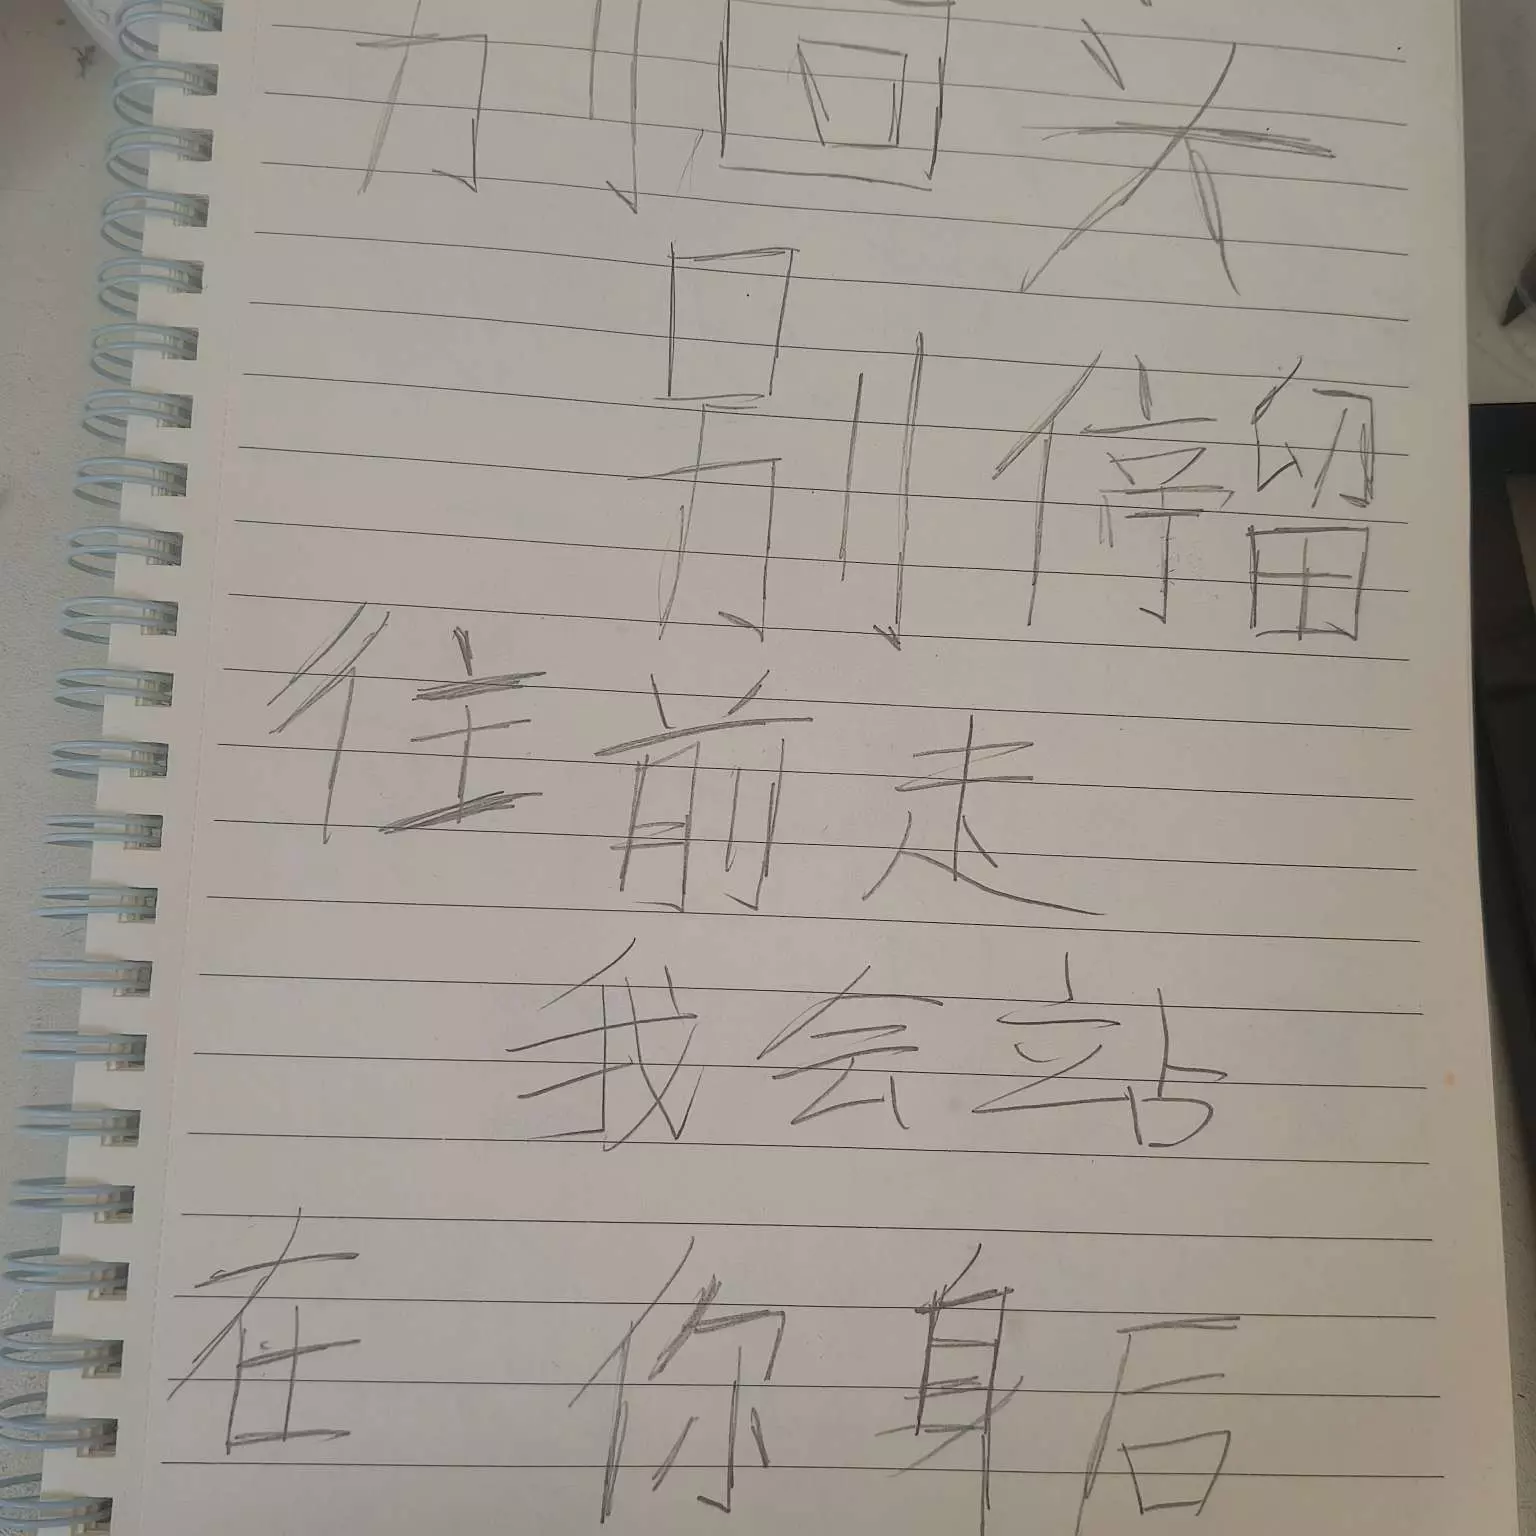 别回头
别停留
往前走
我会站
在你身后